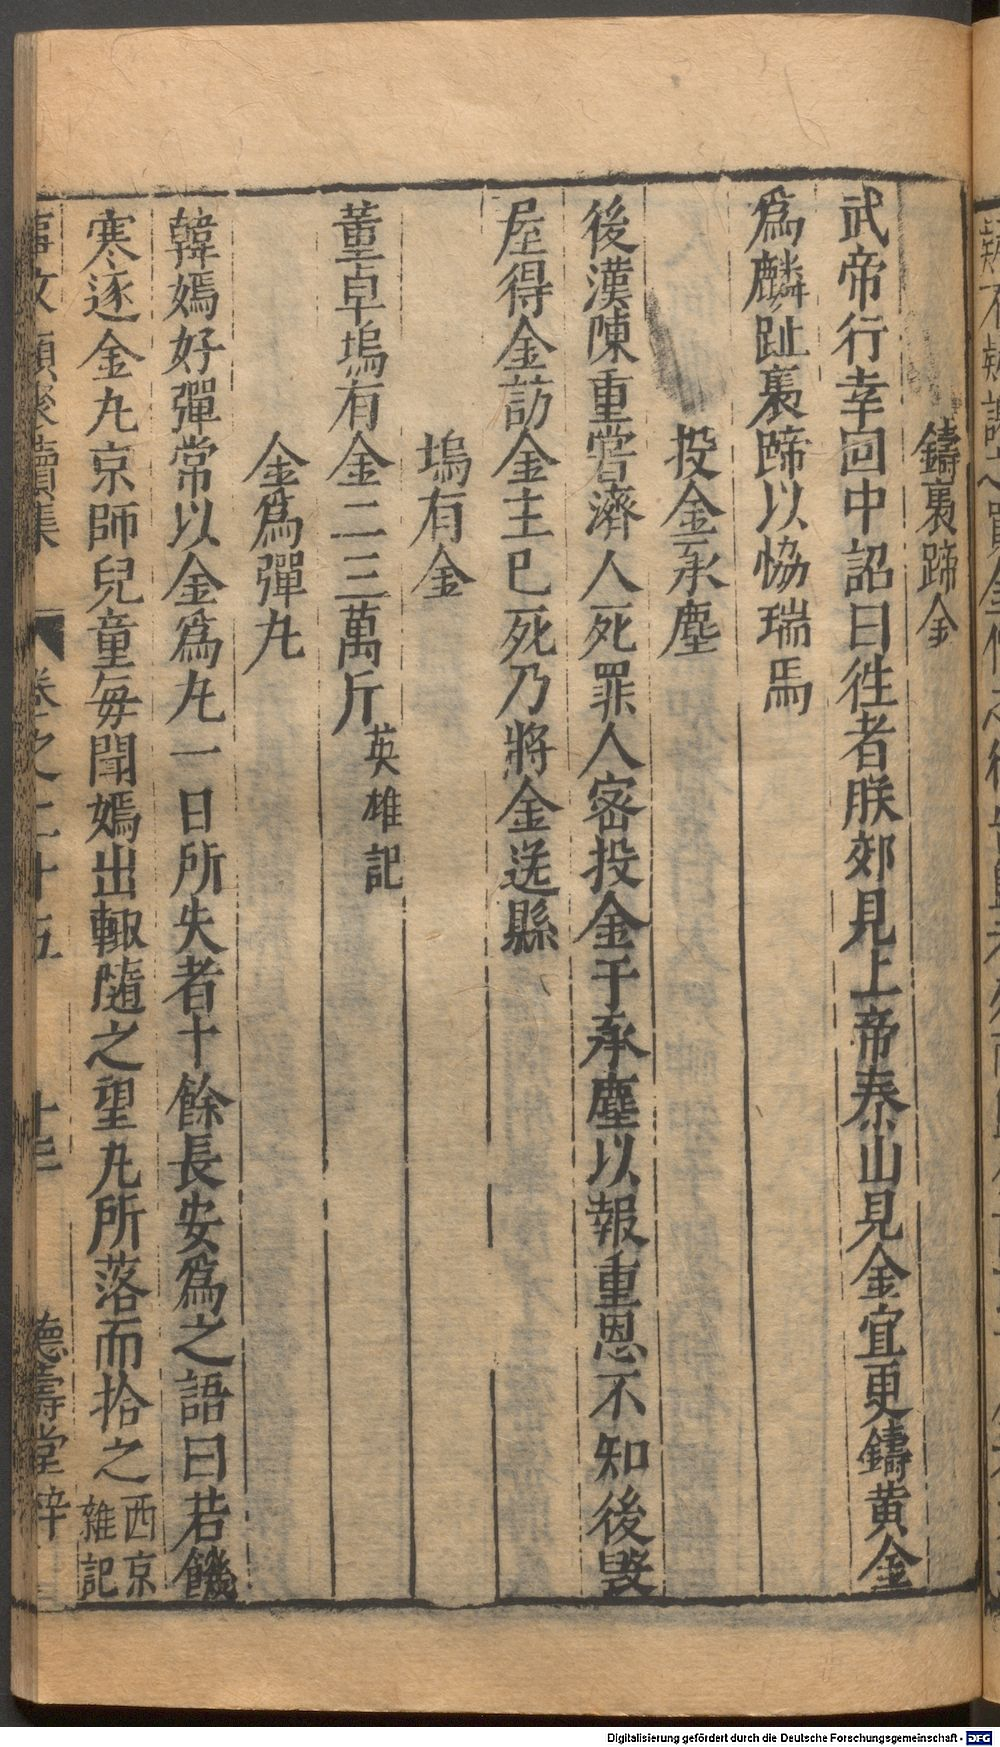 鑄褭蹄金
武帝行幸回中詔曰徃者朕郊見上帝泰山見金宜更鑄黄金
爲麟趾褭蹄以恊瑞焉
投金承塵
後漢陳重嘗濟人死罪人密投金于承塵以報重恩不知後毀
屋得金訪金主巳死乃將金送縣
塢有金
董卓塢有金二三萬斤英雄記
金爲彈丸
韓嫣好彈常以金爲丸一日所失者十餘長安爲之語曰若饑
寒逐金丸京師兒童每聞嫣出輙隨之望丸所落而拾之西京雜記
事文類聚續集 卷之二十五 德壽堂梓
Digitalisierung gefördert durch die Deutsche Forschungsgemeinschaft - DFG